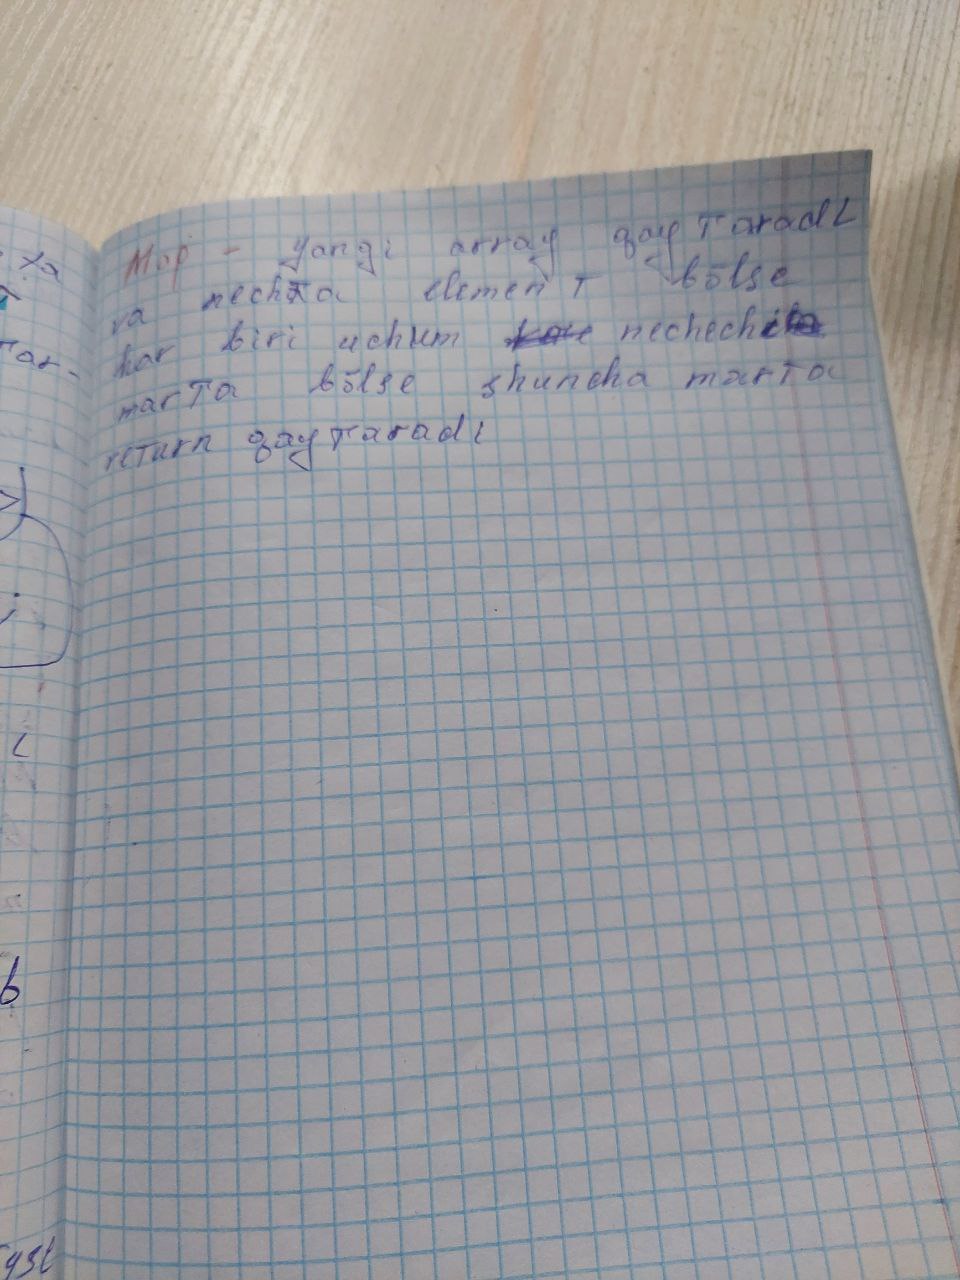 Map - yangi array qaytaradi
va nechta element bōlse
har biri uchun nechech
marta bōlse shuncha marta
return qaytaradi